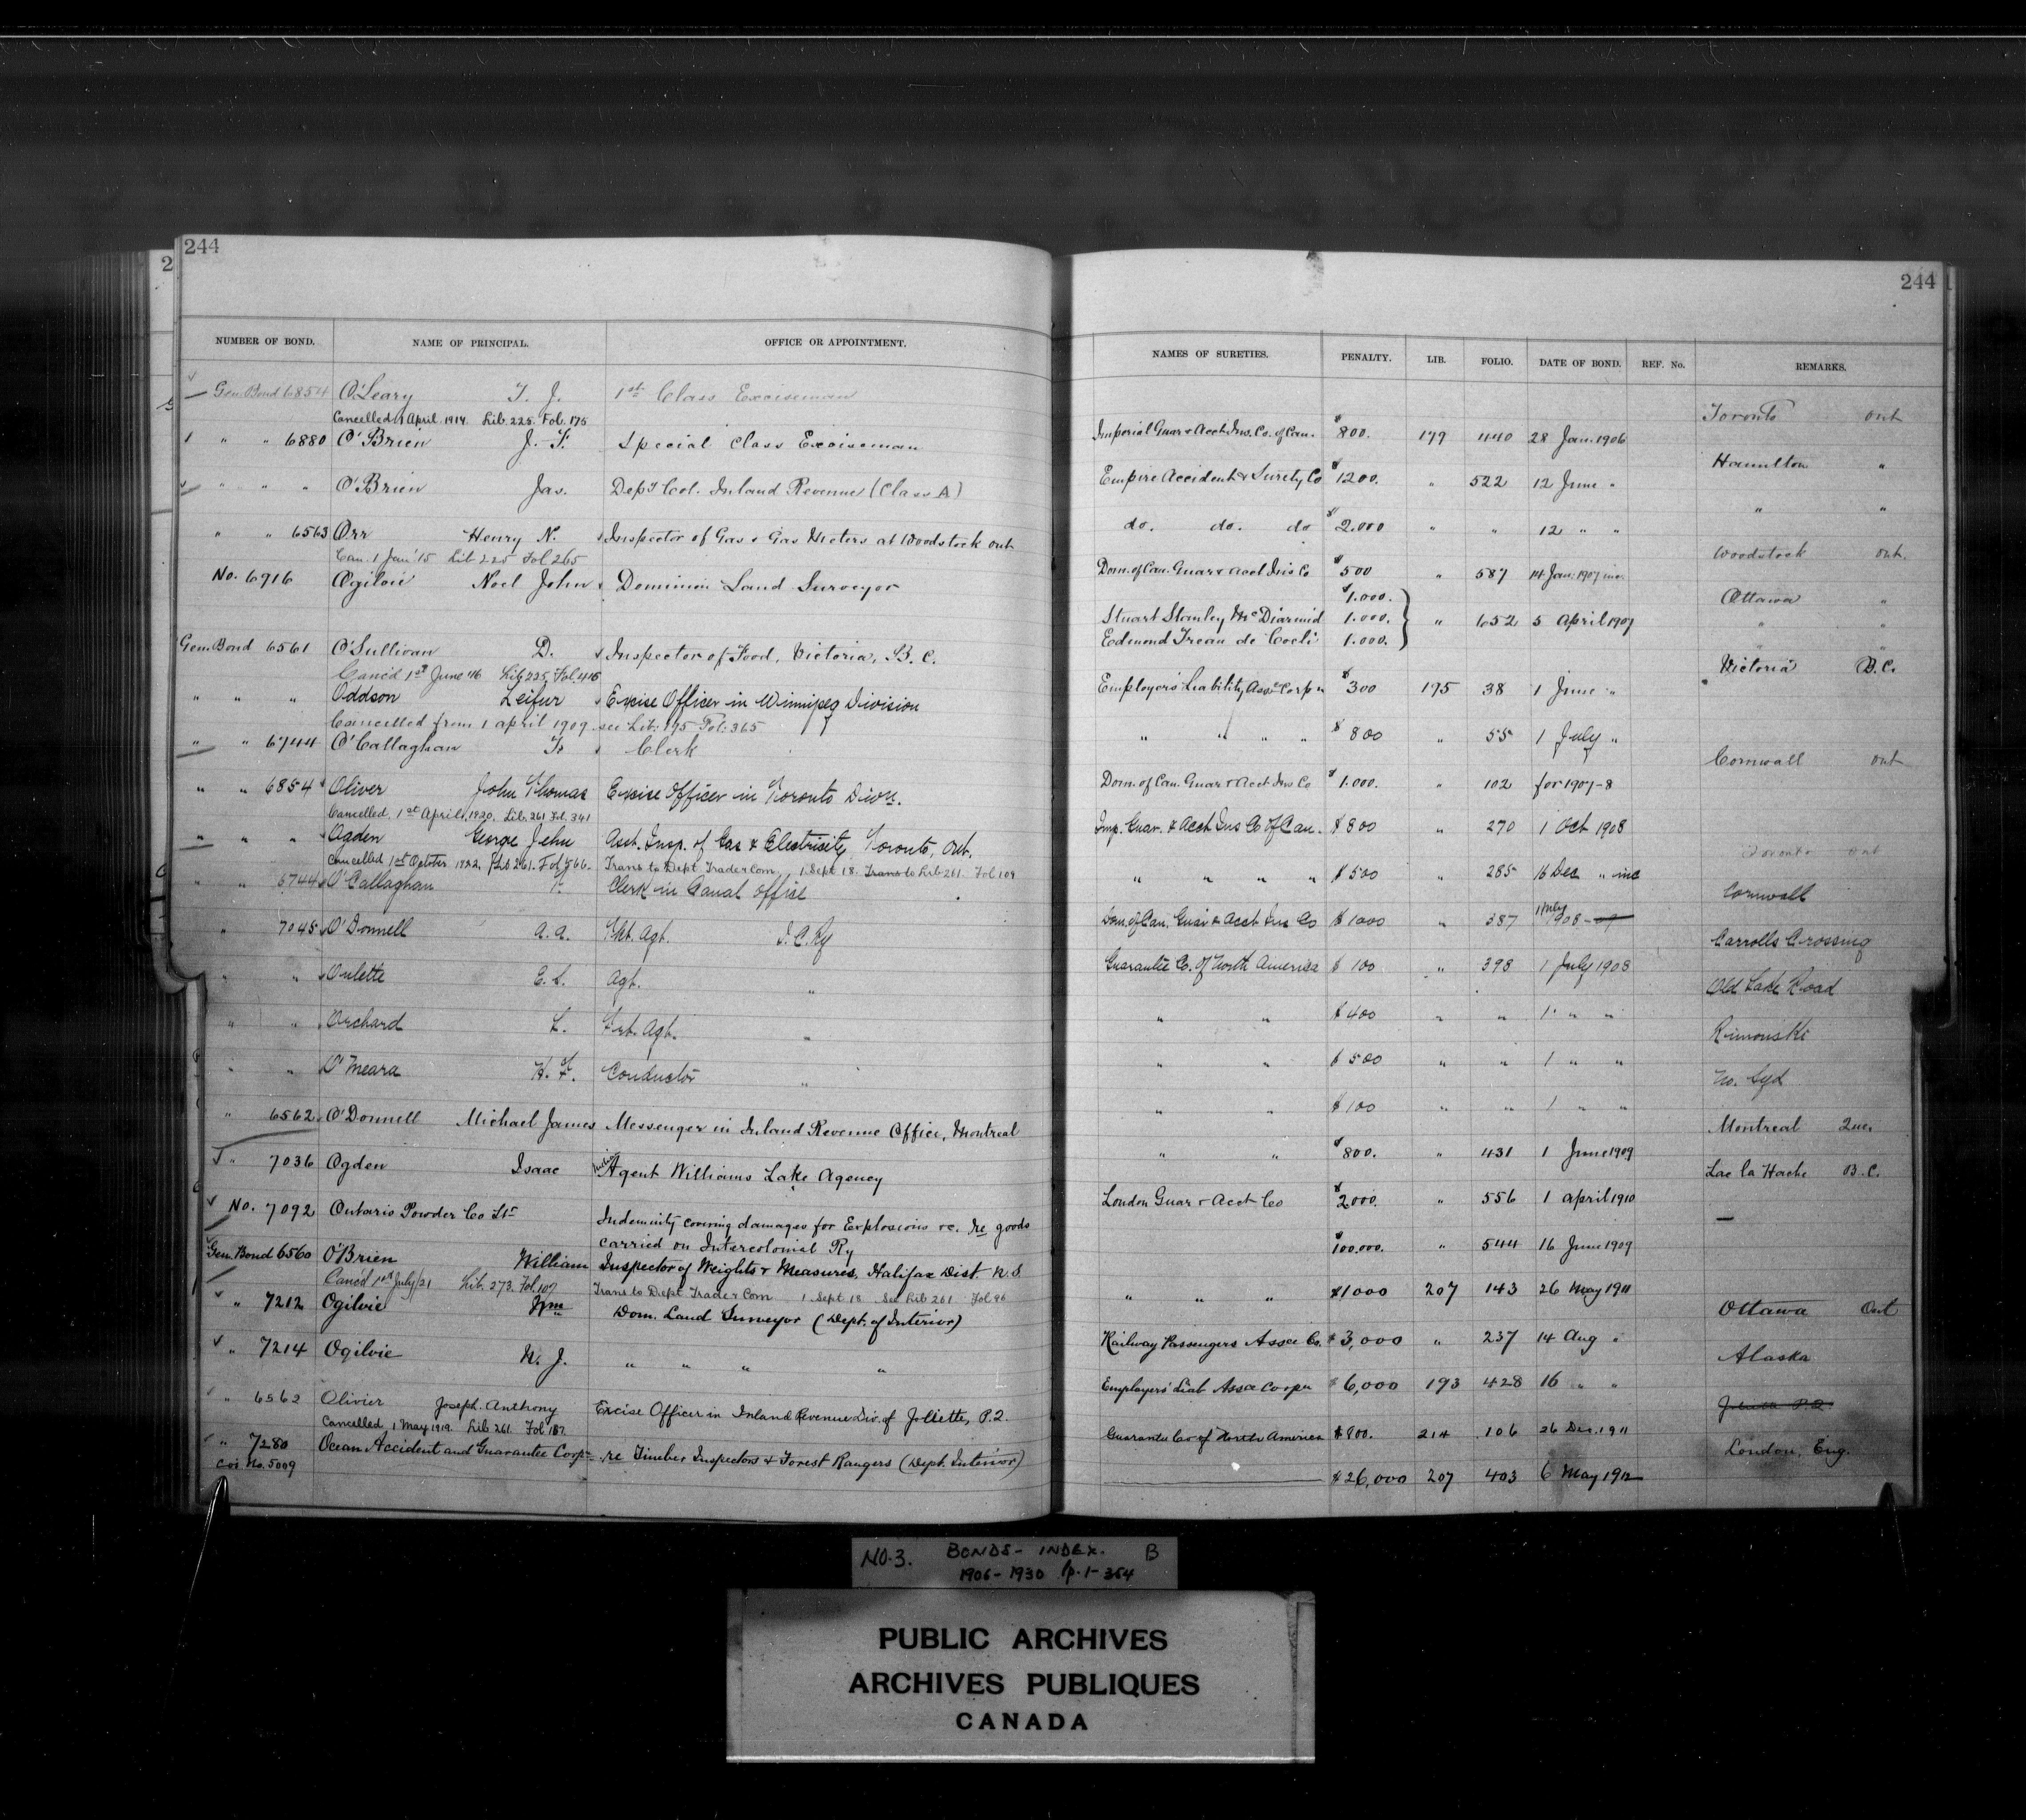 244
NUMBER OF BOND. NAME OF PRINCIPAL. OFFICE OR APPOINTMENT.
Gen. Bond 6854 O'Leary T. J. 1st Class Exciseman
Cancelled 1 April 1914 Lib. 225. Fol. 175
" " 6880 O'Brien J. F. Special Class Exciseman
" " " O'Brien Jas. Dept Col. Inland Revenue (Class A)
" " 6563 Orr Henry N. Inspector of Gas & Gas Meters at Woodstock Ont
Can. 1 Jan '15 Lib 225 Fol 265
No. 6916 Ogilvie Noel John Dominion Land Surveyor
Gen. Bond 6561 O'Sullivan D. Inspector of Food, Victoria, B. C.
Canc'd 1st June '16 Lib 225, Fol 416
" " " Oddson Leifur Excise Officer in Winnipeg Division
Cancelled from 1 April 1909. see Lib: 195 Fol: 365
" " 6744 O'Callaghan F. Clerk
" " 6854 Oliver John Thomas Excise Officer in Toronto Divn.
Cancelled 1st April 1920. Lib. 261 Fol. 341
" " " Ogden George John Asst. Insp. of Gas & Electricity Toronto, Ont.
Cancelled 1st October 1922, Lib 261. Fol 566. Trans to Dept Trade & Com 1 Sept 18. Trans to Lib 261. Fol 109
" " 6744 O'Callaghan F. Clerk in Canal office
" 7045 O'Donnell A. A. Tkt. Agt. I. C. Ry
" " Oulette E. L. Agt. "
" " Orchard L. Frt. Agt. "
" " O'Meara H. F. Conductor "
" 6562 O'Donnell Michael James Messenger in Inland Revenue Office, Montreal
" 7036 Ogden Isaac Indian Agent Williams Lake Agency
No. 7092 Ontario Powder Co Ltd Indemnity covering damages for Explosions &c. re goods
carried on Intercolonial Ry
Gen. Bond 6560 O'Brien William Inspector of Weights & Measures, Halifax Dist. N. S.
Canc'd 1st July/21 Lib. 273. Fol. 107 Trans to Dept Trade & Com 1 Sept 18 See Lib 261 Fol 96
" 7212 Ogilvie Wm Dom. Land Surveyor (Dept. of Interior)
" 7214 Ogilvie N. J. " " " "
" 6562 Olivier Joseph Anthony Excise Officer in Inland Revenue Div. of Joliette, P.Q.
Cancelled 1 May 1919. Lib 261. Fol 187.
" 7280 Ocean Accident and Guarantee Corpn re Timber Inspectors & Forest Rangers (Dept. Interior)
Cor. No. 5009
244
NAMES OF SURETIES. PENALTY. LIB. FOLIO. DATE OF BOND. REF. No. REMARKS.
Imperial Guar & Acct Ins. Co. of Can. $800. 179 440 28 Jan. 1906 Toronto Ont
Empire Accident & Surety Co $1200. " 522 12 June " Hamilton "
do. do. do $2.000 " " 12 " " " "
Dom. of Can. Guar & Acct Ins Co $500 " 587 14 Jan: 1907 Woodstock Ont.
$1.000. Ottawa "
Stuart Stanley McDiarmid 1.000. " 652 5 April 1907 " "
Edmond 1.000. "
Employers Liability Assce Corpn $300 195 38 1 June " Victoria B.C.
" " " " $800 " 55 1 July "
Dom. of Can. Guar & Acct Ins Co $1.000. " 102 for 1907-8 Cornwall Ont
Imp. Guar. & Acct Ins Co of Can. $800 " 270 1 Oct 1908
" " " " $500 " 285 16 Dec " Toronto Ont
Dom. of Can. Guar & Acct Ins Co $1000 " 387 1 July 1908 - 9 Cornwall
Guarantee Co. of North America $100 " 398 1 July 1908 Carrolls Crossing
" " $400 " " 1 " " Old Lake Road
" " $500 " " 1 " " Rimouski
" " $100 " " 1 " " No. Syd
" " $800. " 431 1 June 1909 Montreal Que.
London Guar & Acct Co $2000. " 556 1 April 1910 Lac la Hache B. C.
$100.000. " 544 16 June 1909 —
" " " $1000 207 143 26 May 1911
Railway Passengers Assce Co. $3,000 " 237 14 Aug " Ottawa Ont
Employers' Liab Assce Corpn $6,000 193 428 16 " " Alaska
Guarantee Co of North America $800. 214 106 26 Dec. 1911 Joliette P.Q.
$26,000 207 403 6 May 1912 London, Eng.
NO. 3. BONDS - INDEX. B
1906 - 1930 p. 1 - 354
PUBLIC ARCHIVES
ARCHIVES PUBLIQUES
CANADA